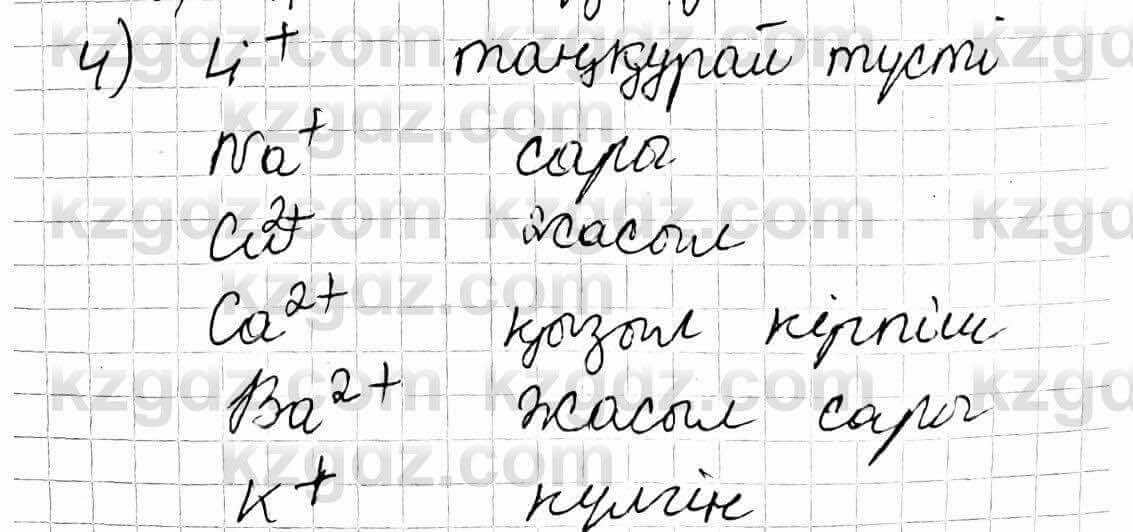 4) Li⁺ таңқурай түсті
Na⁺ сары
Cu²⁺ жасыл
Ca²⁺ қызыл кірпіш
Ba²⁺ жасыл сары
K⁺ күлгін